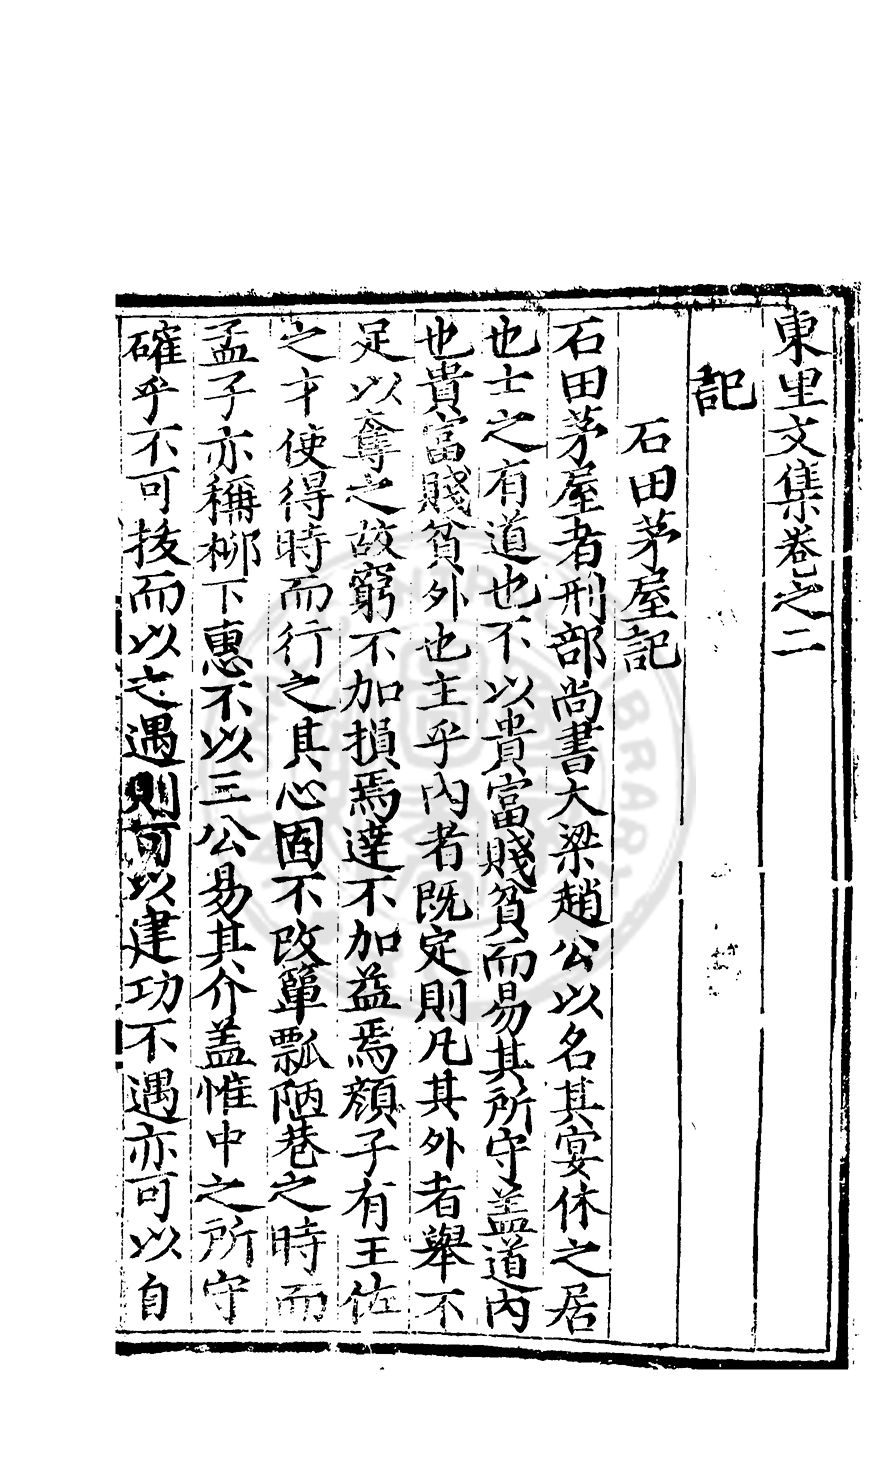 東里文集卷之二
記
石田茅屋記
石田茅屋者刑部尚書大梁趙公以名其宴休之居
也士之有道也不以貴富賤貧而易其所守盖道內
也貴富賤貧外也主乎內者既定則凡其外者舉不
足以奪之故窮不加損焉達不加益焉顏子有王佐
之才使得時而行之其心固不改簞瓢陋巷之時而
孟子亦稱柳下惠不以三公易其介盖惟中之所守
確乎不可拔而以之遇則可以建功不遇亦可以自